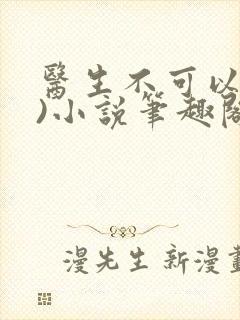 醫生不可以
)小說筆趣閣
漫先生新漫畫